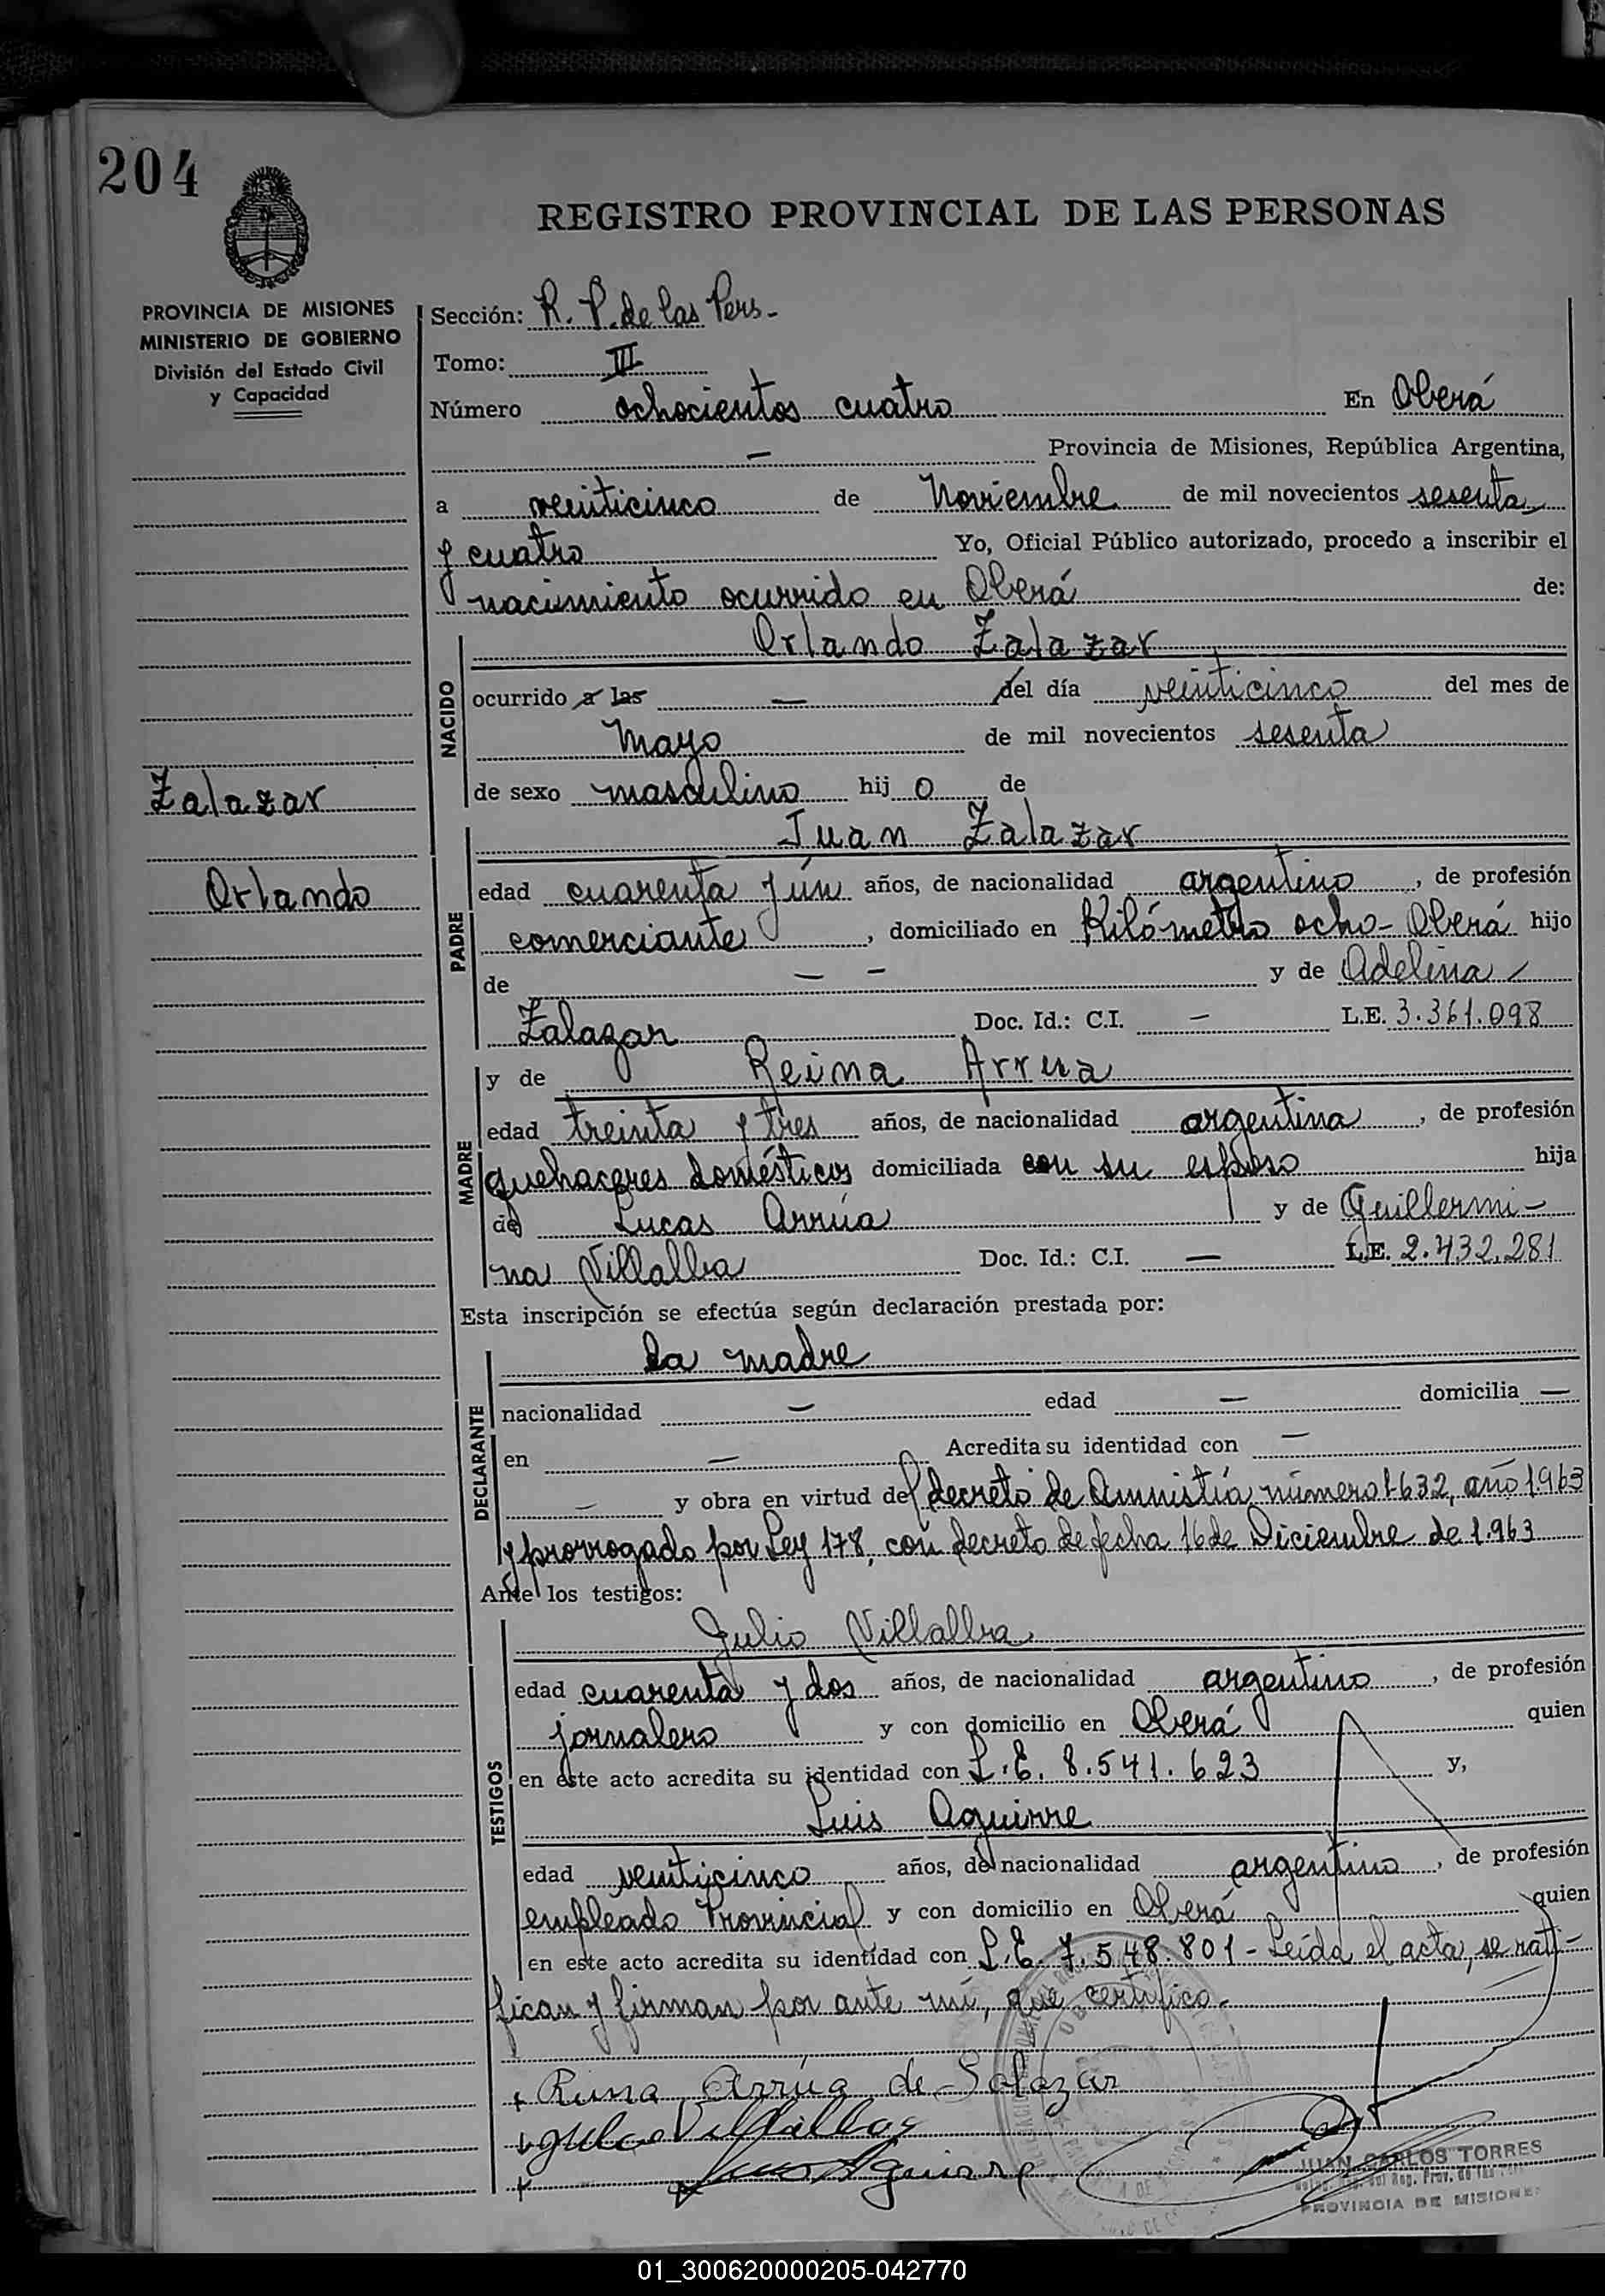 204
REGISTRO PROVINCIAL DE LAS PERSONAS
PROVINCIA DE MISIONES
MINISTERIO DE GOBIERNO
División del Estado Civil
y Capacidad
Sección: R. P. de las Pers.
Tomo: III
Número ochocientos cuatro En Oberá
— Provincia de Misiones, República Argentina,
a veinticinco de Noviembre de mil novecientos sesenta
y cuatro Yo, Oficial Público autorizado, procedo a inscribir el
nacimiento ocurrido en Oberá de:
NACIDO
Orlando Zalazar
ocurrido a las — del día veinticinco del mes de
Mayo de mil novecientos sesenta
de sexo masculino hij o de
Zalazar
Orlando
PADRE
Juan Zalazar
edad cuarenta y ún años, de nacionalidad argentino, de profesión
comerciante, domiciliado en Kilómetro ocho - Oberá hijo
de — — y de Adelina
Zalazar Doc. Id.: C.I. — L.E. 3.361.098
MADRE
y de Reina Arrua
edad treinta y tres años, de nacionalidad argentina, de profesión
quehaceres domésticos domiciliada con su esposo hija
de Lucas Arrúa y de Guillermi-
na Villalba Doc. Id.: C.I. — L.E. 2.432.281
Esta inscripción se efectúa según declaración prestada por:
DECLARANTE
la madre
nacionalidad — edad — domicilia —
en — Acredita su identidad con —
— y obra en virtud del decreto de Amnistía número 1632, año 1963
y prorrogado por Ley 178, con decreto de fecha 16 de Diciembre de 1.963
Ante los testigos:
TESTIGOS
Julio Villalba
edad cuarenta y dos años, de nacionalidad argentino, de profesión
jornalero y con domicilio en Oberá quien
en este acto acredita su identidad con L.E. 8.541.623 y,
Luis Aguirre
edad veinticinco años, de nacionalidad argentino, de profesión
empleado Provincial y con domicilio en Oberá quien
en este acto acredita su identidad con L.E. 7.548.801 - Leída el acta, se rati-
fican y firman por ante mí, que certifico.
Arrúa de Salazar
Villalba
Aguirre
JUAN CARLOS TORRES
Reg. Prov. de las
PROVINCIA DE MISIONES
01_300620000205-042770